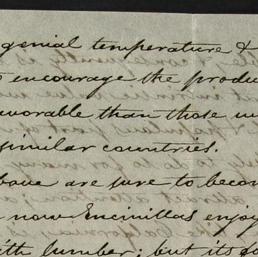 genial temperature &
encourage the produc
avorable than those u
similar countries.
bove are sure to becom
now Encinillas enjoy
ith lumber; but its so